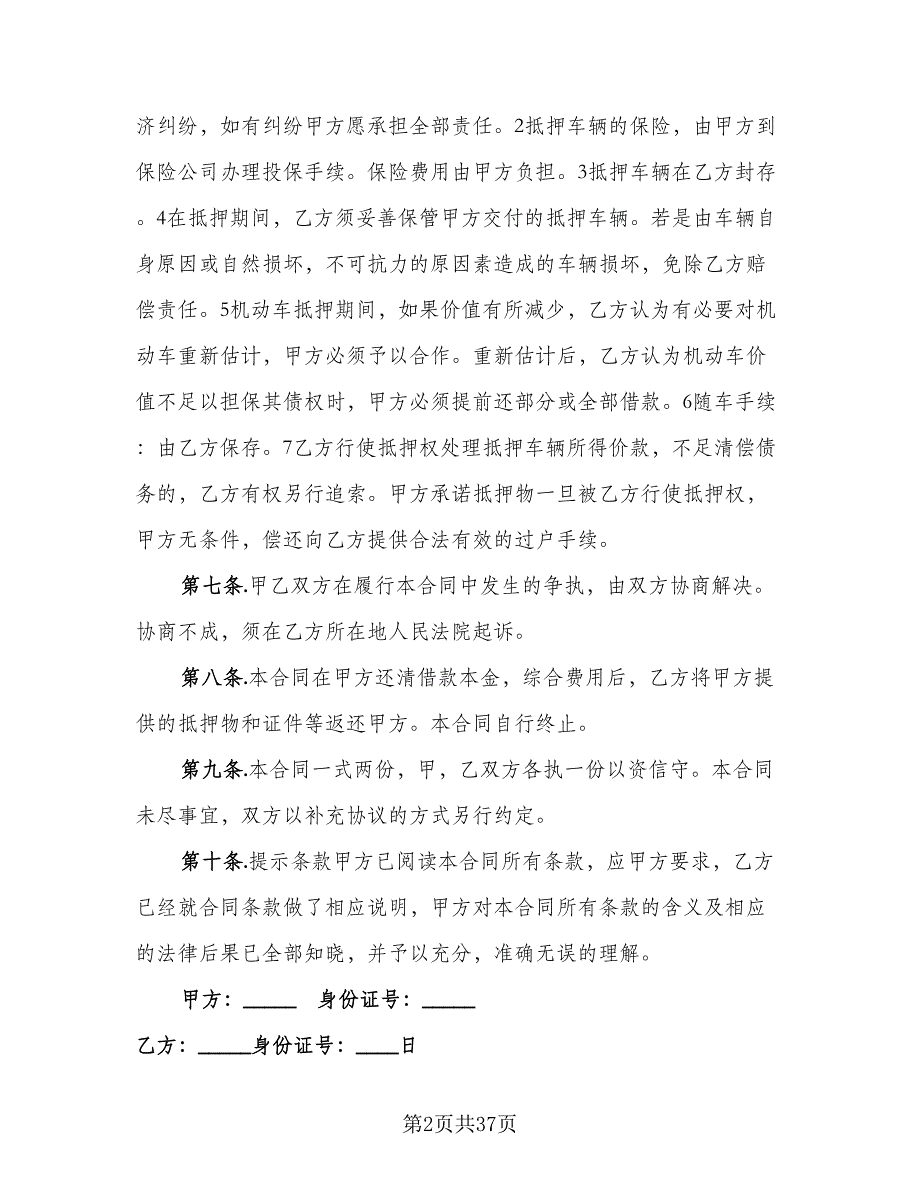 济纠纷，如有纠纷甲方愿承担全部责任。2抵押车辆的保险，由甲方到
保险公司办理投保手续。保险费用由甲方负担。3抵押车辆在乙方封存
。4在抵押期间，乙方须妥善保管甲方交付的抵押车辆。若是由车辆自
身原因或自然损坏，不可抗力的原因素造成的车辆损坏，免除乙方赔
偿责任。5机动车抵押期间，如果价值有所减少，乙方认为有必要对机
动车重新估计，甲方必须予以合作。重新估计后，乙方认为机动车价
值不足以担保其债权时，甲方必须提前还部分或全部借款。6随车手续
：由乙方保存。7乙方行使抵押权处理抵押车辆所得价款，不足清偿债
务的，乙方有权另行追索。甲方承诺抵押物一旦被乙方行使抵押权，
甲方无条件，偿还向乙方提供合法有效的过户手续。
第七条.甲乙双方在履行本合同中发生的争执，由双方协商解决。
协商不成，须在乙方所在地人民法院起诉。
第八条.本合同在甲方还清借款本金，综合费用后，乙方将甲方提
供的抵押物和证件等返还甲方。本合同自行终止。
第九条.本合同一式两份，甲，乙双方各执一份以资信守。本合同
未尽事宜，双方以补充协议的方式另行约定。
第十条.提示条款甲方已阅读本合同所有条款，应甲方要求，乙方
已经就合同条款做了相应说明，甲方对本合同所有条款的含义及相应
的法律后果已全部知晓，并予以充分，准确无误的理解。
甲方：_____　身份证号：_____
乙方：_____身份证号：____日
第2页共37页